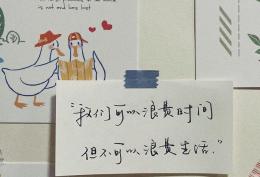 is not and long lost
“我们可以浪费时间
但不可以浪费生活.”